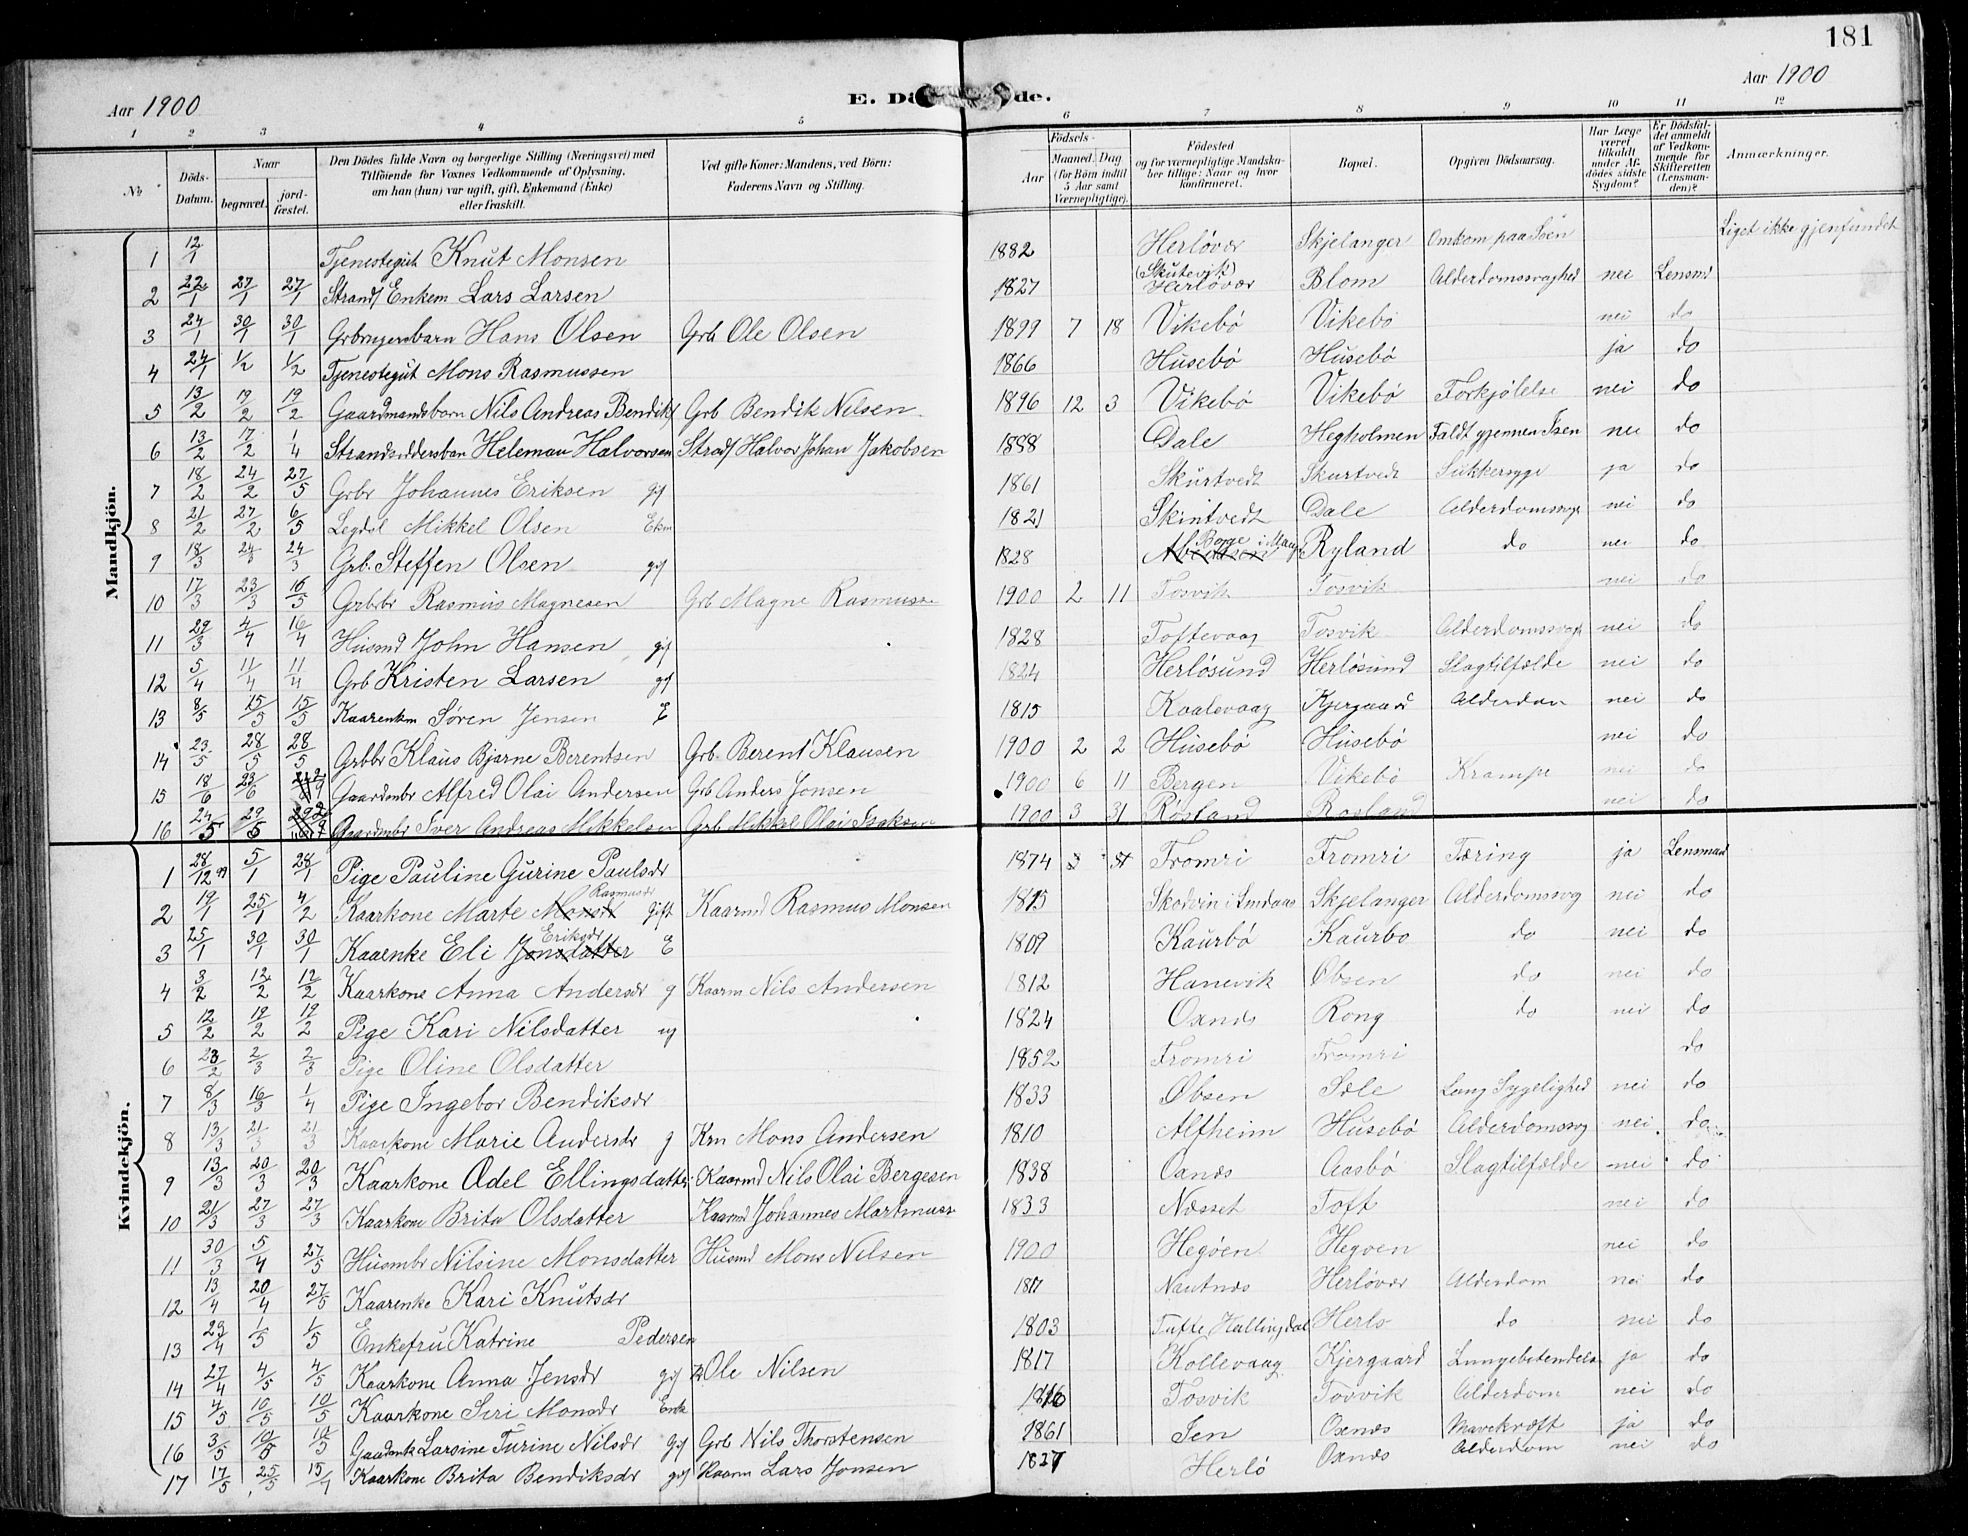 181
Aar 1900
Aar 1900
E. Dö de.
1 2 3 4 5 6 7 8 9 10 11 12
No
Döds-Datum.
Naar
begravet.
jord-fæstet.
Den Dödes fulde Navn og borgerlige Stilling (Næringsvei) med
Tilföiende for Voxnes Vedkommende af Oplysning,
om han (hun) var ugift, gift, Enkemand (Enke)
eller fraskilt.
Ved gifte Koner: Mandens, ved Börn:
Faderens Navn og Stilling.
Födsels-
Aar
Maaned. Dag
(for Börn indtil
5 Aar samt
Værnepligtige).
Födested
og for værnepligtige Mandska-
ber tillige: Naar og hvor
konfirmeret.
Bopæl.
Opgiven Dödsaarsag.
Har Læge
været
tilkaldt
under Af-
dödes sidste
Sygdom?
Er Dödsfal-
det anmeldt
af Vedkom-
mende for
Skifteretten
(Lensman-
den)?
Anmærkninger.
Mandkjön.
1 12/1 Tjenestegut Knut Monsen 1882 Herløvær Skjelanger Omkom paa Søen Liget ikke gjenfundet
2 22/1 27/1 27/1 Strands Enkem Lars Larsen 1827 (Skutevik) Herløvær Blom Alderdomssvaghed nei Lensmd
3 24/1 30/1 30/1 Grbrugersbarn Hans Olsen Grb Ole Olsen 1899 7 18 Vikebø Vikebø nei do
4 24/1 1/2 1/2 Tjenestegut Mons Rasmussen 1866 Husebø Husebø ja do
5 13/2 19/2 19/2 Gaardmandsbarn Nils Andreas Bendiks Grb Bendik Nilsen 1896 12 3 Vikebø Vikebø Forkjølelse nei do
6 13/2 17/2 1/4 Strandsiddersbarn Heleman Halvorsen Strads Halvor Johan Jakobsen 1888 Dale Hegholmen Faldt gjennem Isen nei do
7 18/2 24/2 27/5 Grbr Johannes Eriksen gif 1861 Skurtvedt Skurtvedt Sukkersyge ja do
8 21/2 27/2 6/5 Legdsl Mikkel Olsen Ekm 1821 Skintvedt Dale Alderdomssvgh nei do
9 18/3 24/3 24/3 Grb. Steffen Olsen gif 1828 Boge i Mang Ryland do nei do
10 17/3 23/3 16/5 Grbrbr Rasmus Magnesen Grb Magne Rasmuss 1900 2 11 Tosvik Tosvik nei do
11 29/3 4/4 16/4 Husmd John Hansen gif 1828 Toftevaag Tosvik Alderdomssvgh nei do
12 5/4 11/4 11/4 Grb Kristen Larsen gf 1824 Herløsund Herløsund Slagtilfælde nei do
13 8/5 15/5 15/5 Kaarenkm Søren Jensen E 1815 Kaalevaag Kjergaard Alderdom nei do
14 23/5 28/5 28/5 Grbbr Klaus Bjarne Berentsen Grb. Berent Klausen 1900 2 2 Husebø Husebø nei do
15 18/6 23/6 Gaardmbr Alfred Olai Andersen Grb Anders Jonsen 1900 6 11 Bergen Vikebø Krampe nei do
16 24/5 29/5 Gaardmbr Iver Andreas Mikkelsen Grb Mikkel Olai Isaksen 1900 3 31 Røsland Rosland nei do
Kvindekjön.
1 28/12 99 5/1 28/1 Pige Pauline Gurine Paulsdr 1874 Fromri Fromri Tæring ja Lensmand
2 19/1 25/1 4/2 Kaarkone Marte Monsdr Rasmusdr gift Kaarmd Rasmus Monsen 1815 Skodvin i Lindaas Skjelanger Alderdomssvg nei do
3 25/1 30/1 30/1 Kaaenke Eli Jonsdatter Eriksdr E 1809 Kaurbø Kaurbo do nei do
4 3/2 12/2 12/2 Kaarkone Anna Andersdr g Kaarm Nils Andersen 1812 Hanevik Øbsen do nei do
5 12/2 19/2 19/2 Pige Kari Nilsdatter ug 1824 Oxnæs Rong do nei do
6 23/2 2/3 2/3 Pige Oline Olsdatter 1852 Fromri Fromri do
7 8/3 16/3 1/4 Pige Ingebor Bendiksdr 1833 Øbsen Sæle Lung Sygelighed nei do
8 13/3 21/3 21/3 Kaarkone Marie Andersdr g Krm Mons Andersen 1810 Alfheim Husebø Alderdomssvg nei do
9 13/3 20/3 20/3 Kaarkone Adel Ellingsdatter Kaarmd Nils Olai Bergesen 1838 Oxnæs Aasbø Slagtilfælde nei do
10 21/3 27/3 27/3 Kaarkone Brita Olsdatter Kaarmd Johannes Martinuss 1833 Næsset Toft nei do
11 30/3 5/4 27/5 Husmbr Nilsine Monsdatter Husmd Mons Nilsen 1900 Hegøen Hegøen nei do
12 13/4 20/4 27/5 Kaarenke Kari Knutsdr 1817 Nautnæs Herløvær Alderdom nei do
13 23/4 1/5 1/5 Enkefru Katrine Pedersen 1803 Tufte Hallingdal Herlø do nei do
14 27/4 4/5 4/5 Kaarkone Anna Jensdr gif Ole Nilsen 1817 Kollevaag Kjergaard Lungebetendels ja do
15 4/5 10/5 10/5 Kaarkone Siri Monsdr Enk 1816 Tosvik Tosvik Alderdom nei do
16 3/5 10/5 10/5 Larsine Turine Nilsdr gif Grb Nils Thorstensen 1861 Sen Oxnæs Mavekræft ja do
17 17/5 25/5 Kaarkone Brita Bendiksdr gif Kaarm Lars Jonsen 1827 Herlø Oxnæs Alderdom nei do